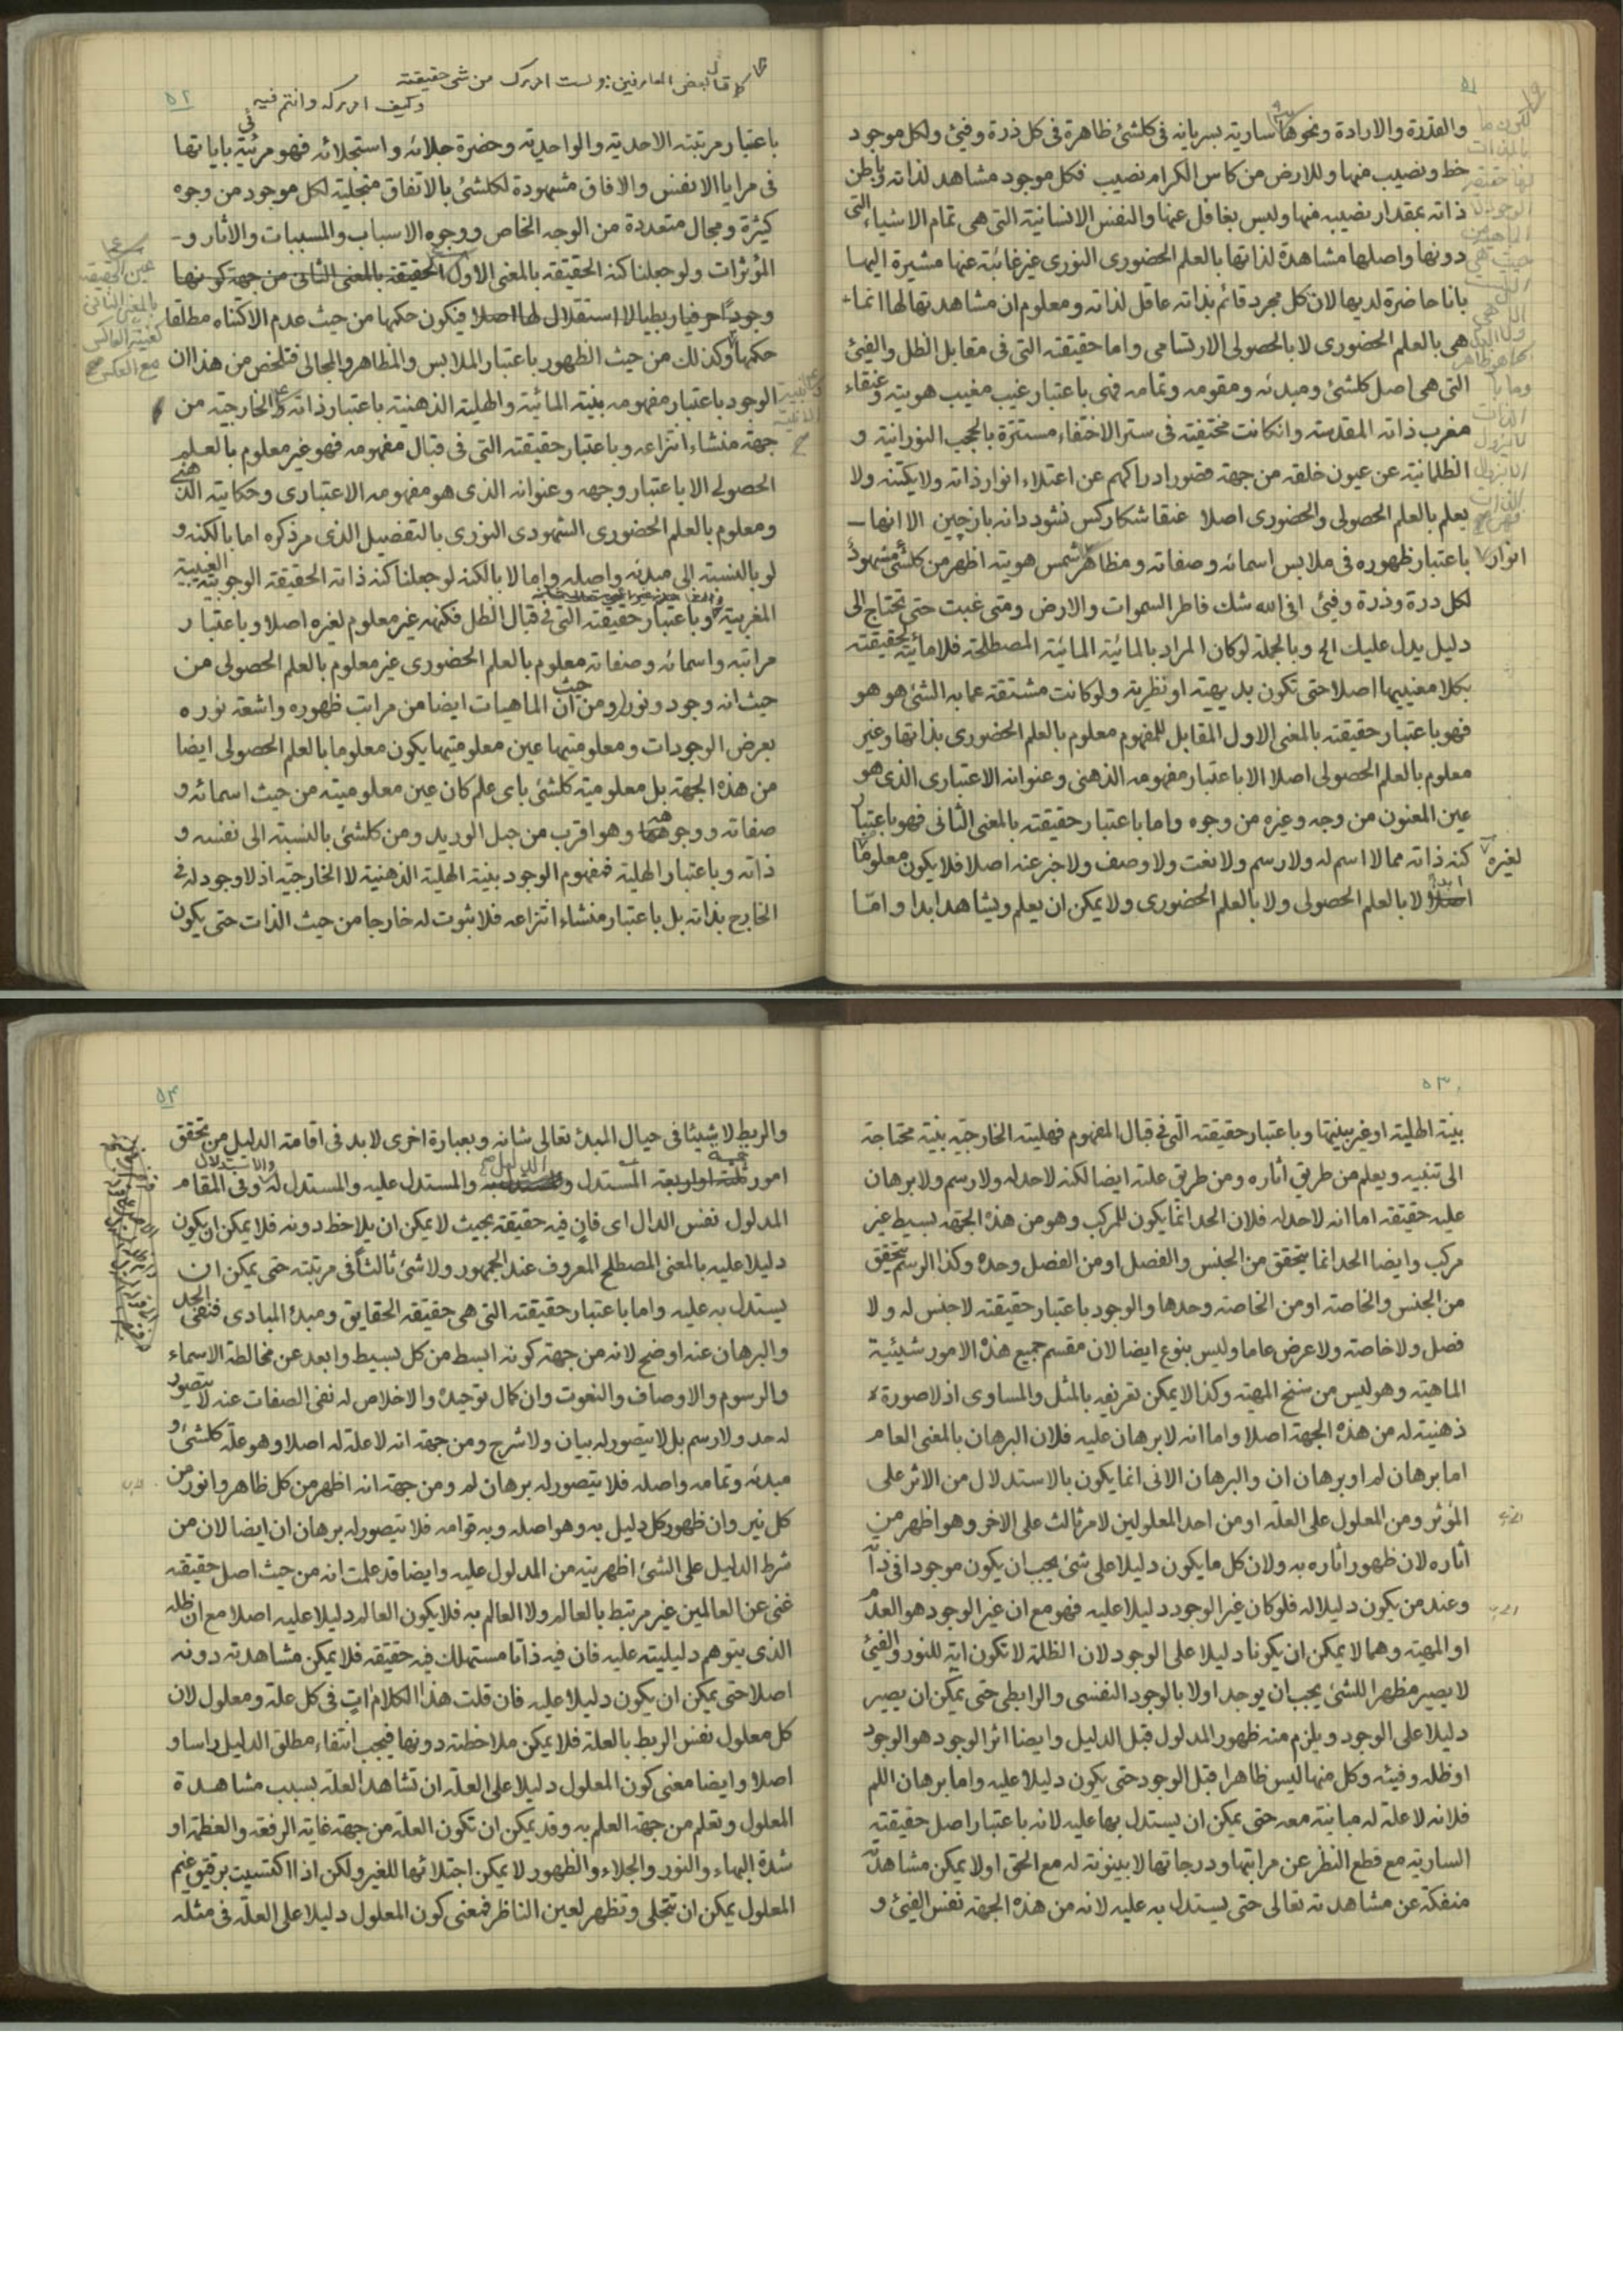 ٥١
والقدرة والارادة ونحوها سارية بسريانه فى كلشئ ظاهرة فى كل ذرة وفيئ ولكل موجود
حظ ونصيب منها وللارض من كاس الكرام نصيب فكل موجود مشاهد لذاته وباطن
ذاته بمقدار نصيبه منها وليس بغافل عنها والنفس الانسانية التى هى تمام الاشياء التى
دونها واصلها مشاهدة لذاتها بالعلم الحضورى النورى غير غائبة عنها مشيرة اليها
بانا حاضرة لديها لان كل مجرد قائم بذاته عاقل لذاته ومعلوم ان مشاهدتها لها انما
هى بالعلم الحضورى لا بالحصولى الارتسامى واما حقيقته التى فى مقابل الظل والفيئ
التى هى اصل كلشئ ومبدئه ومقومه وتمامه فهى باعتبار غيب مغيب هويته وعنقاء
مغرب ذاته المقدسة وانكانت مختفية فى ستر الاختفاء مستترة بالحجب النورانية و
الظلمانية عن عيون خلقه من جهة قصور ادراكهم عن اعتلاء انوار ذاته ولا يكتنه ولا
يعلم بالعلم الحصولى والحضورى اصلا عنقا شكار كس نشود دانه بازچين الا انها
باعتبار ظهوره فى ملابس اسمائه وصفاته ومظاهر شمس هويته اظهر من كلشئ مشهودة
لكل درة وذرة وفيئ افى الله شك فاطر السموات والارض ومتى غبت حتى تحتاج الى
دليل يدل عليك الخ وبالجملة لو كان المراد بالمائية المائية المصطلحة فلا مائية لحقيقته
بكلا معنييها اصلا حتى تكون بديهية او نظرية ولو كانت مشتقة عما به الشئ هو هو
فهو باعتبار حقيقته بالمعنى الاول المقابل للمفهوم معلوم بالعلم الحضورى بذاتها وغير
معلوم بالعلم الحصولى اصلا الا باعتبار مفهومه الذهنى وعنوانه الاعتبارى الذى هو
عين المعنون من وجه وغيره من وجوه واما باعتبار حقيقته بالمعنى الثانى فهو باعتبار
كنه ذاته مما لا اسم له ولا رسم ولا نعت ولا وصف ولا خبر عنه اصلا فلا يكون معلوما لغيره
ابدا لا بالعلم الحصولى ولا بالعلم الحضورى ولا يمكن ان يعلم ويشاهد ابدا واما
٥٢
كما قال بعض العارفين: ولست ادرك من شئ حقيقته
وكيف ادركه وانتم فيه
باعتبار مرتبته الاحدية والواحدية وحضرة جلائه واستجلائه فهو مرئية باياتها
فى مرايا الانفس والافاق مشهودة لكلشئ بالاتفاق متجلية لكل موجود من وجوه
كثيرة ومجال متعددة من الوجه الخاص ووجوه الاسباب والمسببات والاثار و
المؤثرات ولو جعلنا كنه الحقيقة بالمعنى الاول الحقيقة بالمعنى الثانى من جهة كونها
وجودا حرفيا ربطيا لا استقلال لها اصلا فيكون حكمها من حيث عدم الاكتناه مطلقا
حكمها وكذلك من حيث الظهور باعتبار الملابس والمظاهر والمجالى فتلخص من هذا ان
الوجود باعتبار مفهومه بينة المائية والهلية الذهنية باعتبار ذاته والخارجية من
جهة منشاء انتزاعه وباعتبار حقيقته التى فى قبال مفهومه فهو غير معلوم بالعلم
الحصولى الا باعتبار وجهه وعنوانه الذى هو مفهومه الاعتبارى وحكايته الذهنى
ومعلوم بالعلم الحضورى الشهودى النورى بالتفصيل الذى مر ذكره اما بالكنه و
لو بالنسبة الى مبدئه واصله واما لا بالكنه لو جعلنا كنه ذاته الحقيقة الوجوبية الغيبية
المغربية وباعتبار حقيقته التى فى قبال الظل فكنهه غير معلوم لغيره اصلا وباعتبار
مراتبه واسمائه وصفاته معلوم بالعلم الحضورى غير معلوم بالعلم الحصولى من
حيث انه وجود ونور ومن حيث ان الماهيات ايضا من مراتب ظهوره واشعة نوره
بعرض الوجودات ومعلوميتها عين معلوميتها يكون معلوما بالعلم الحصولى ايضا
من هذه الجهة بل معلومية كلشئ باى علم كان عين معلوميته من حيث اسمائه و
صفاته ووجوهه وهو اقرب من حبل الوريد ومن كلشئ بالنسبة الى نفسه و
ذاته وباعتبار الهلية فمفهوم الوجود بينة الهلية الذهنية لا الخارجية اذ لا وجود له فى
الخارج بذاته بل باعتبار منشاء انتزاعه فلا ثبوت له خارجا من حيث الذات حتى يكون
عين الحقيقة
بالمعنى الثانى
مع العكس
٥٣
بينة الهلية او غير بينتها وباعتبار حقيقته التى فى قبال المفهوم فهليته الخارجية بينة محتاجة
الى تنبيه ويعلم من طريق اثاره ومن طريق علته ايضا لكنه لا حد له ولا رسم ولا برهان
عليه حقيقة اما انه لا حد له فلان الحد انما يكون للمركب وهو من هذه الجهة بسيط غير
مركب وايضا الحد انما يتحقق من الجنس والفصل او من الفصل وحده وكذا الرسم يتحقق
من الجنس والخاصة او من الخاصة وحدها والوجود باعتبار حقيقته لا جنس له ولا
فصل ولا خاصة ولا عرض عاما وليس بنوع ايضا لان مقسم جميع هذه الامور شيئية
الماهية وهو ليس من سنخ المهية وكذا لا يمكن تعريفه بالمثل والمساوى اذ لا صورة
ذهنية له من هذه الجهة اصلا واما انه لا برهان عليه فلان البرهان بالمعنى العام
اما برهان لم او برهان ان والبرهان الانى انما يكون بالاستدلال من الاثر على
المؤثر ومن المعلول على العلة او من احد المعلولين لامر ثالث على الاخر وهو اظهر من
اثاره لان ظهور اثاره به ولان كل ما يكون دليلا على شئ يجب ان يكون موجودا فى ذاته
وعند من يكون دليلا له فلو كان غير الوجود دليلا عليه فهو مع ان غير الوجود هو العدم
او المهية وهما لا يمكن ان يكونا دليلا على الوجود لان الظلمة لا تكون اية للنور والفيئ
لا يصير مظهرا للشئ يجب ان يوجد اولا بالوجود النفسى والرابطى حتى يمكن ان يصير
دليلا على الوجود ويلزم منه ظهور المدلول قبل الدليل وايضا اثر الوجود هو الوجود
او ظله وفيئه وكل منها ليس ظاهرا قبل الوجود حتى يكون دليلا عليه واما برهان اللم
فلانه لا علة له مباينة معه حتى يمكن ان يستدل بها عليه لانه باعتبار اصل حقيقته
السارية مع قطع النظر عن مراتبها ودرجاتها لا بينونة له مع الحق اولا يمكن مشاهدته
منفكة عن مشاهدته تعالى حتى يستدل به عليه لانه من هذه الجهة نفس الفيئ و
٥٤
والربط لا شيئا فى حيال المبدء تعالى شانه وبعبارة اخرى لابد فى اقامة الدليل من تحقق
امور ثلثة او اربعة المستدل والدليل والمستدل عليه والمستدل له والاستدلال وفى المقام
المدلول نفس الدال اى فان فيه حقيقة بحيث لا يمكن ان يلاحظ دونه فلا يمكن ان يكون
دليلا عليه بالمعنى المصطلح المعروف عند الجمهور ولا شئ ثالثا فى مرتبته حتى يمكن ان
يستدل به عليه واما باعتبار حقيقته التى هى حقيقة الحقايق ومبدء المبادى فنفى الحد
والبرهان عنه اوضح لانه من جهة كونه ابسط من كل بسيط وابعد عن مخالطة الاسماء
والرسوم والاوصاف والنعوت وان كمال توحيده والاخلاص له نفى الصفات عنه لا يتصور
له حد ولا رسم بل لا يتصور له بيان ولا شرح ومن جهة انه لا علة له اصلا وهو علة كلشئ و
مبدئه وتمامه واصله فلا يتصور له برهان لم ومن جهة انه اظهر من كل ظاهر وانور من
كل نير وان ظهور كل دليل به وهو اصله وبه قوامه فلا يتصور له برهان ان ايضا لان من
شرط الدليل على الشئ اظهريته من المدلول عليه وايضا قد علمت انه من حيث اصل حقيقته
غنى عن العالمين غير مرتبط بالعالم ولا العالم به فلا يكون العالم دليلا عليه اصلا مع ان ظله
الذى يتوهم دليليته عليه فان فيه ذاتا مستهلك فيه حقيقة فلا يمكن مشاهدته دونه
اصلا حتى يمكن ان يكون دليلا عليه فان قلت هذا الكلام ات فى كل علة ومعلول لان
كل معلول نفس الربط بالعلة فلا يمكن ملاحظته دونها فيجب انتفاء مطلق الدليل راسا و
اصلا وايضا معنى كون المعلول دليلا على العلة ان تشاهد العلة بسبب مشاهدة
المعلول وتعلم من جهة العلم به وقد يمكن ان تكون العلة من جهة غاية الرفعة والعظمة او
شدة البهاء والنور والجلاء والظهور لا يمكن اجتلائها للغير ولكن اذا اكتسيت برقيق غيم
المعلول يمكن ان تتجلى وتظهر لعين الناظر فمعنى كون المعلول دليلا على العلة فى مثله